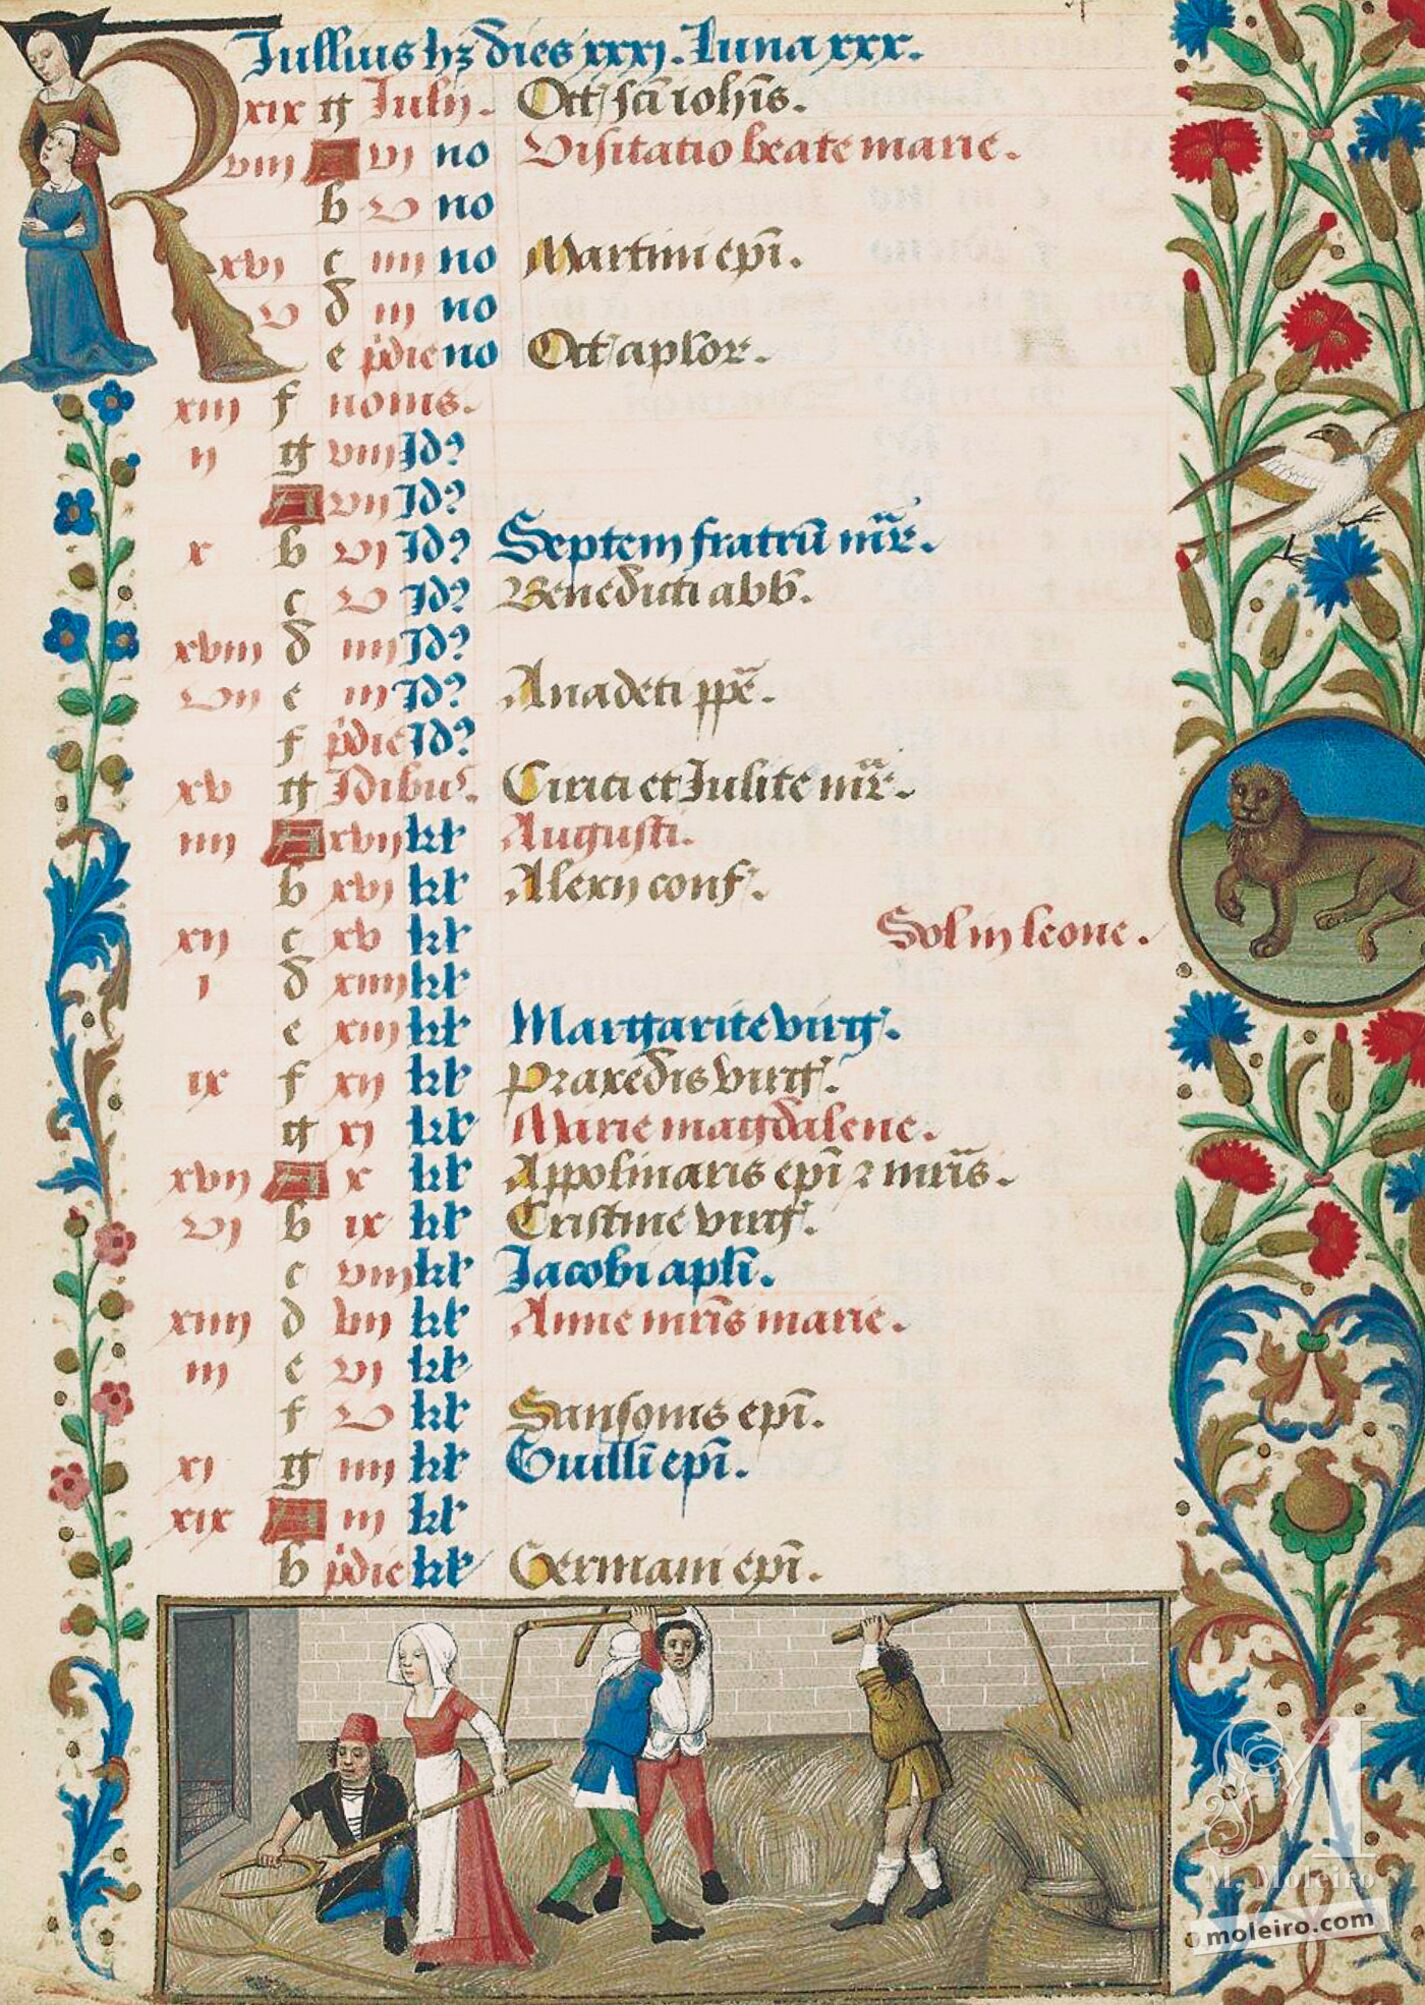 KL Jullius hz dies xxxj. Luna xxx.
xix g Julij. Oct' sci iohis.
viii A vj no Visitatio beate marie.
b v no
xvj c iiij no Martini epi.
v d iij no
e pdie no Oct' aplor.
xiij f nonis.
ij g viij Id'
A vij Id'
x b vj Id' Septem fratru mr.
c v Id' Benedicti abb.
xviij d iiij Id'
vij e iij Id' Anacleti ppe.
f pdie Id'
xv g Idibus. Cirici et Julite mr.
iiij A xvij kl Augusti.
b xvj kl Alexij conf.
xij c xv kl Sol in leone.
j d xiiij kl
e xiij kl Margarite virg.
ix f xij kl Praxedis virg.
g xj kl Marie magdalene.
xvij A x kl Appolinaris epi 2 mris.
vj b ix kl Cristine virg.
c viij kl Jacobi apli.
xiiij d vij kl Anne mris marie.
iij e vj kl
f v kl Sansonis epi.
xj g iiij kl Guilli epi.
xix A iij kl
b pdie kl Germani epi.
M. Moleiro
moleiro.com